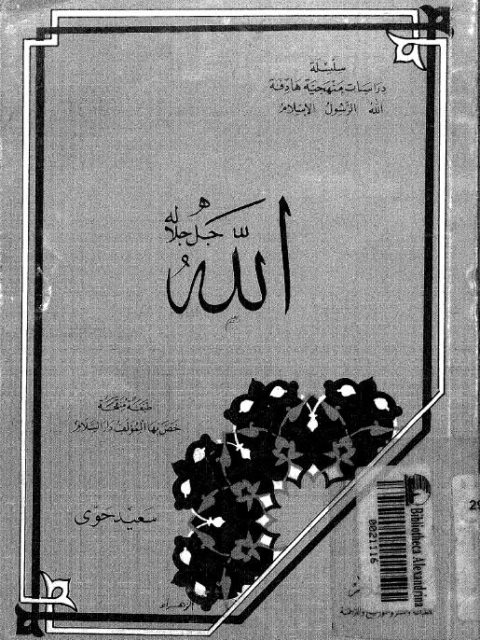 سلسلة
دراسات منهجية هادفة
الله الرسول الإسلام
الله
جل جلاله
طبعة منقحة
خص بها المؤلف دار السلام
سعيد حوى
Bibliotheca Alexandrina
0021116
29